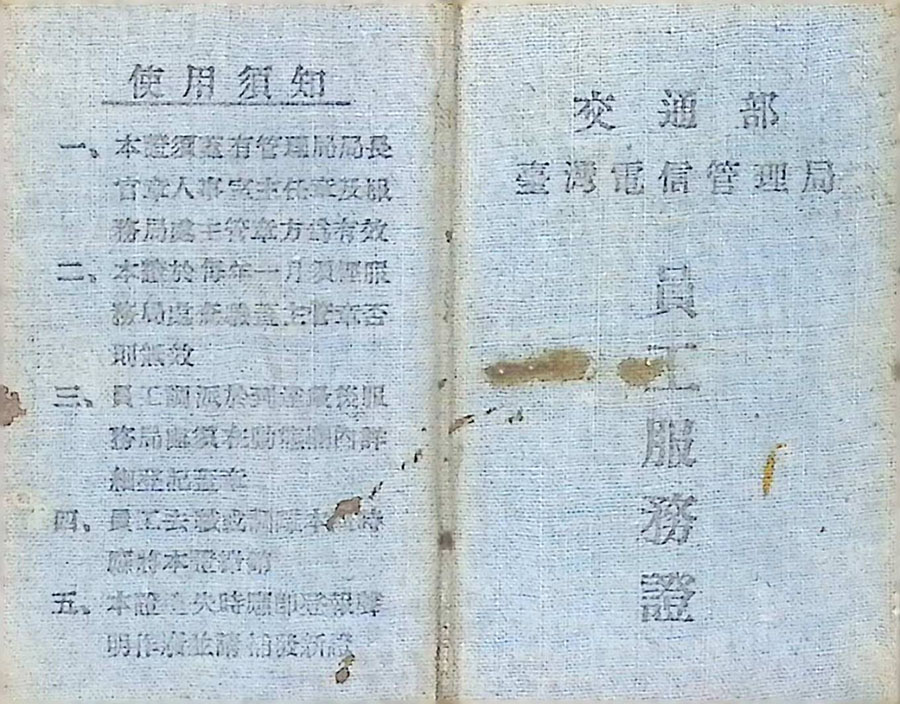 使用須知
一、本證須蓋有管理局局長
官章人事室主任章及服
務局處主管章方為有效
二、本證於每年一月須經服
務局處蓋主管章否
則無效
三、員工調派於到達最後服
務局處須在動態欄內詳
細登記蓋章
四、員工去職或調時
應將本證繳銷
五、本證遺失時應即登報聲
明作廢並請補發新證
交通部
臺灣電信管理局
員工服務證